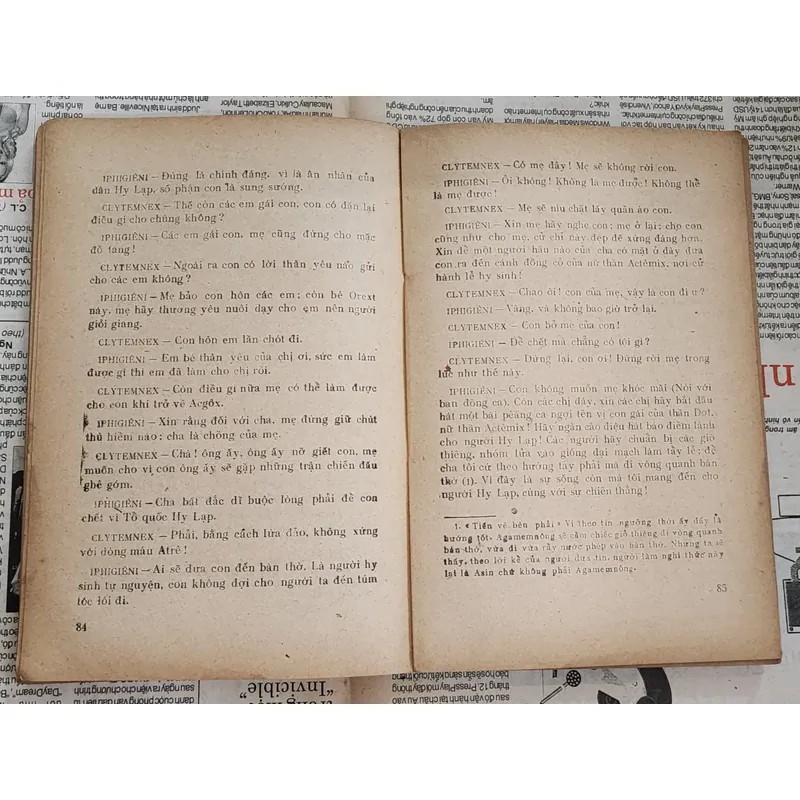 IPHIGIÊNI — Đúng là chính đáng, vì là ân nhân của
dân Hy Lạp, số phận con là sung sướng.
CLYTEMNEX — Thế còn các em gái con, con có dặn lại
điều gì cho chúng không?
IPHIGIÊNI — Các em gái con, mẹ cũng đừng cho mặc
đồ tang!
CLYTEMNEX — Ngoài ra con có lời thân yêu nào gửi
cho các em không?
IPHIGIÊNI — Mẹ bảo con hôn các em; còn bé Orext
này, mẹ hãy thương yêu nuôi dạy cho em nên người
giỏi giang.
CLYTEMNEX — Con hôn em lần chót đi.
IPHIGIÊNI — Em bé thân yêu của chị ơi, sức em làm
được gì thì em đã làm cho chị rồi.
CLYTEMNEX — Còn điều gì nữa mẹ có thể làm được
cho con khi trở về Acgôx.
IPHIGIÊNI — Xin rằng đối với cha, mẹ đừng giữ chút
thù hiềm nào; cha là chồng của mẹ.
CLYTEMNEX — Chà! ông ấy, ông ấy nỡ giết con, mẹ
muốn cho vì con ông ấy sẽ gặp những trận chiến đấu
ghê gớm.
IPHIGIÊNI — Cha bất đắc dĩ buộc lòng phải để con
chết vì Tổ quốc Hy Lạp.
CLYTEMNEX — Phải, bằng cách lừa đảo, không xứng
với dòng máu Atrê!
IPHIGIÊNI — Ai sẽ đưa con đến bàn thờ. Là người hy
sinh tự nguyện, con không đợi cho người ta đến túm
tóc lôi đi.
84
CLYTEMNEX — Có mẹ đây! Mẹ sẽ không rời con.
IPHIGIÊNI — Ôi không! Không là mẹ được! Không thể
là mẹ được!
CLYTEMNEX — Mẹ sẽ níu chặt lấy quần áo con.
IPHIGIÊNI — Xin mẹ hãy nghe con; mẹ ở lại; cho con
cũng như cho mẹ, cử chỉ này đẹp đẽ xứng đáng hơn.
Xin để một người hầu nào của cha có mặt ở đây đưa
con ra đến cánh đồng cỏ của nữ thần Actêmix, nơi cử
hành lễ hy sinh!
CLYTEMNEX — Chao ôi! con của mẹ, vậy là con đi ư?
IPHIGIÊNI — Vâng, và không bao giờ trở lại.
CLYTEMNEX — Con bỏ mẹ của con!
IPHIGIÊNI — Để chết mà chẳng có tội gì?
CLYTEMNEX — Dừng lại, con ơi! Đừng rời mẹ trong
lúc như thế này.
IPHIGIÊNI — Con không muốn mẹ khóc mãi (Nói với
ban đồng ca). Còn các chị đây, xin các chị hãy bắt đầu
hát một bài pêăng ca ngợi tên vị con gái của thần Dớt,
nữ thần Actêmix! Hãy ngân cao điệu hát báo điềm lành
cho người Hy Lạp! Các người hãy chuẩn bị các giỏ
thiêng, nhóm lửa vào giống đại mạch làm tẩy lễ; để
cha tôi cứ theo hướng tay phải mà đi vòng quanh bàn
thờ (1). Vì đây là sự sống còn mà tôi mang đến cho
người Hy Lạp, cùng với sự chiến thắng!
1. « Tiến về bên phải » Vì theo tín ngưỡng thời ấy đấy là
hướng tốt, Agamemnông sẽ cầm chiếc giỏ thiêng đi vòng quanh
bàn thờ, vừa đi vừa rẩy nước phép vào bàn thờ. Nhưng ta sẽ
thấy, theo lời kể của người đưa tin, người làm nghi thức này
lại là Asin chứ không phải Agamemnông.
85
"Invicible"